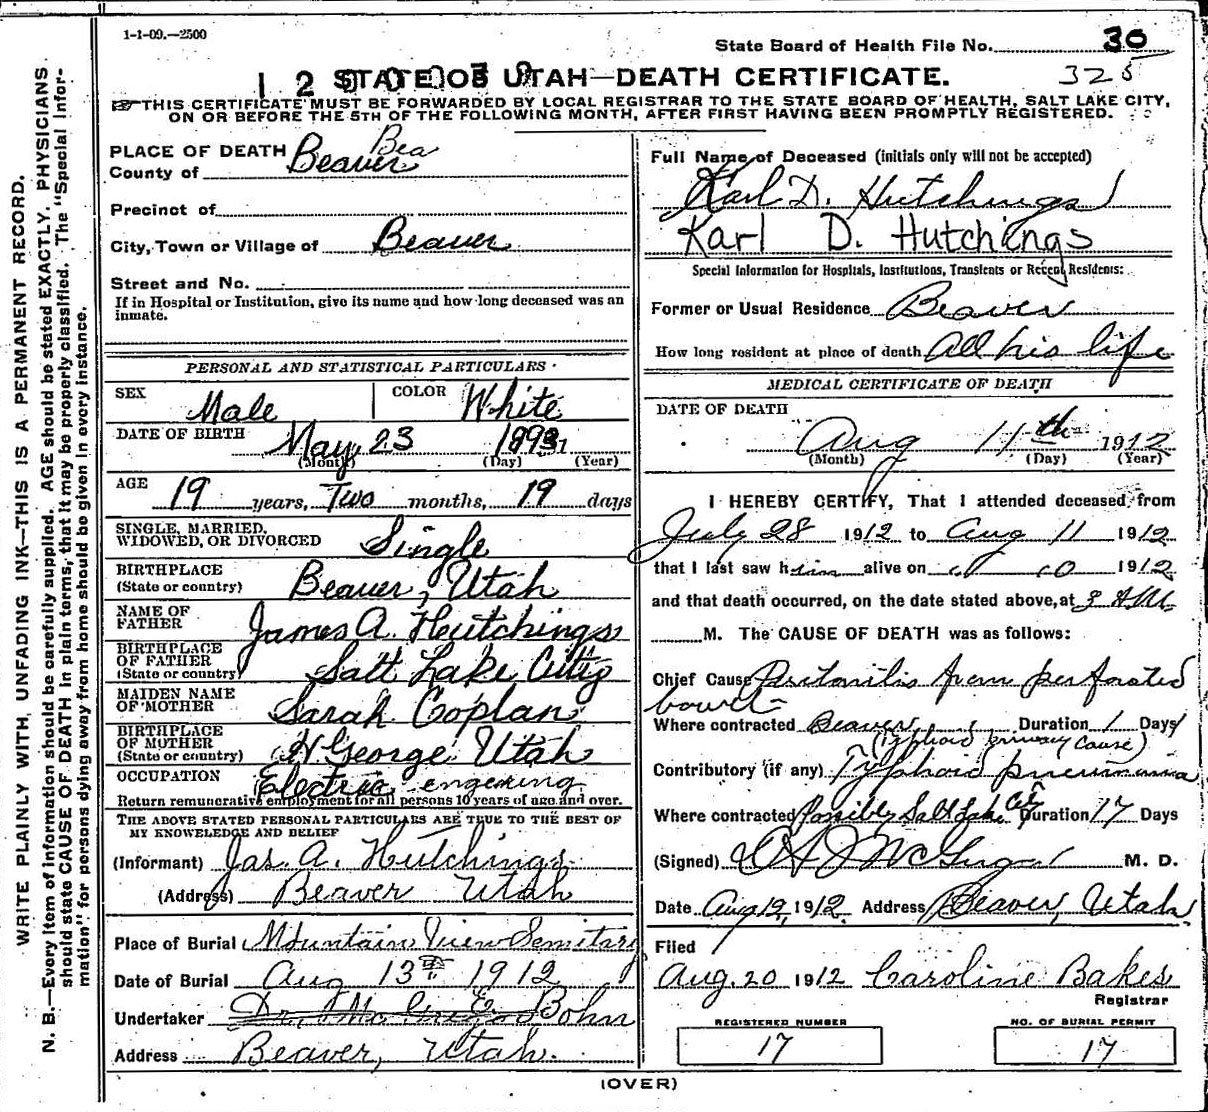 1-1-09.—2500
State Board of Health File No. 30
STATE OF UTAH—DEATH CERTIFICATE. 325
THIS CERTIFICATE MUST BE FORWARDED BY LOCAL REGISTRAR TO THE STATE BOARD OF HEALTH, SALT LAKE CITY,
ON OR BEFORE THE 5TH OF THE FOLLOWING MONTH, AFTER FIRST HAVING BEEN PROMPTLY REGISTERED.
WRITE PLAINLY WITH UNFADING INK—THIS IS A PERMANENT RECORD.
N. B.—Every item of Information should be carefully supplied. AGE should be stated EXACTLY. PHYSICIANS
should state CAUSE OF DEATH in plain terms, that it may be properly classified. The "Special Infor-
mation" for persons dying away from home should be given in every instance.
PLACE OF DEATH Bea
County of Beaver
Precinct of
City, Town or Village of Beaver
Street and No.
If in Hospital or Institution, give its name and how long deceased was an
inmate.
PERSONAL AND STATISTICAL PARTICULARS
SEX Male COLOR White
DATE OF BIRTH May 23 1893
(Month) (Day) (Year)
AGE 19 years, Two months, 19 days
SINGLE, MARRIED,
WIDOWED, OR DIVORCED Single
BIRTHPLACE
(State or country) Beaver, Utah
NAME OF
FATHER James A. Hutchings
BIRTHPLACE
OF FATHER
(State or country) Salt Lake City
MAIDEN NAME
OF MOTHER Sarah Coplan
BIRTHPLACE
OF MOTHER
(State or country) George, Utah
OCCUPATION Electric engeering
Return remunerative employment for all persons 10 years of age and over.
THE ABOVE STATED PERSONAL PARTICULARS ARE TRUE TO THE BEST OF
MY KNOWLEDGE AND BELIEF
(Informant) Jas. A. Hutchings
(Address) Beaver Utah
Place of Burial Mountain View Semitary
Date of Burial Aug 13th 1912
Undertaker E. Bohn
Address Beaver, Utah.
Full Name of Deceased (initials only will not be accepted)
Karl D. Hutchings
Karl D. Hutchings
Special Information for Hospitals, Institutions, Transients or Recent Residents:
Former or Usual Residence Beaver
How long resident at place of death All his life
MEDICAL CERTIFICATE OF DEATH
DATE OF DEATH
Aug 11th 1912
(Month) (Day) (Year)
I HEREBY CERTIFY, That I attended deceased from
July 28 1912 to Aug 11 1912
that I last saw him alive on 1912
and that death occurred, on the date stated above, at 3 A.M.
M. The CAUSE OF DEATH was as follows:
Chief Cause Peritonitis from perforated
bowel
Where contracted Beaver Duration 1 Days
(Typhoid primary cause)
Contributory (if any) Typhoid pneumonia
Where contracted Possibly Salt Lake City Duration 17 Days
(Signed) M. D.
Date Aug 12, 1912 Address Beaver, Utah
Filed
Aug. 20 1912 Caroline Bakes
Registrar
REGISTERED NUMBER NO. OF BURIAL PERMIT
17 17
(OVER)